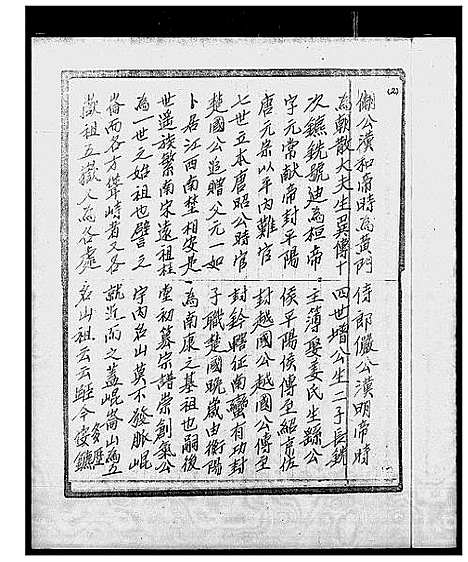 (2)
僩公漢和帝時為黃門侍郎儼公漢明帝時
為朝散大夫生巽傳十四世增公生二子長銑
次鑣銑號廸為桓帝主簿娶姜氏生繇公
字元常獻帝封平陽侯平陽侯傳至紹京佐
唐元宗以平內難官封越國公越國公傳至
七世立本唐昭公時官封鈐轄征南蠻有功封
楚國公追贈父元一如子職楚國晚歲由衡陽
卜居江西南埜相安是為南康之基祖也嗣後
世遂族繁南宋遠祖柱堂初募宗譜崇創氣公
為一世之始祖也譬之宇內名山莫不發脈崐
崙而各方聳峙者又各就近而之蓋崐崙山為五
嶽祖五嶽人為各處名山祖云云延今後鑣